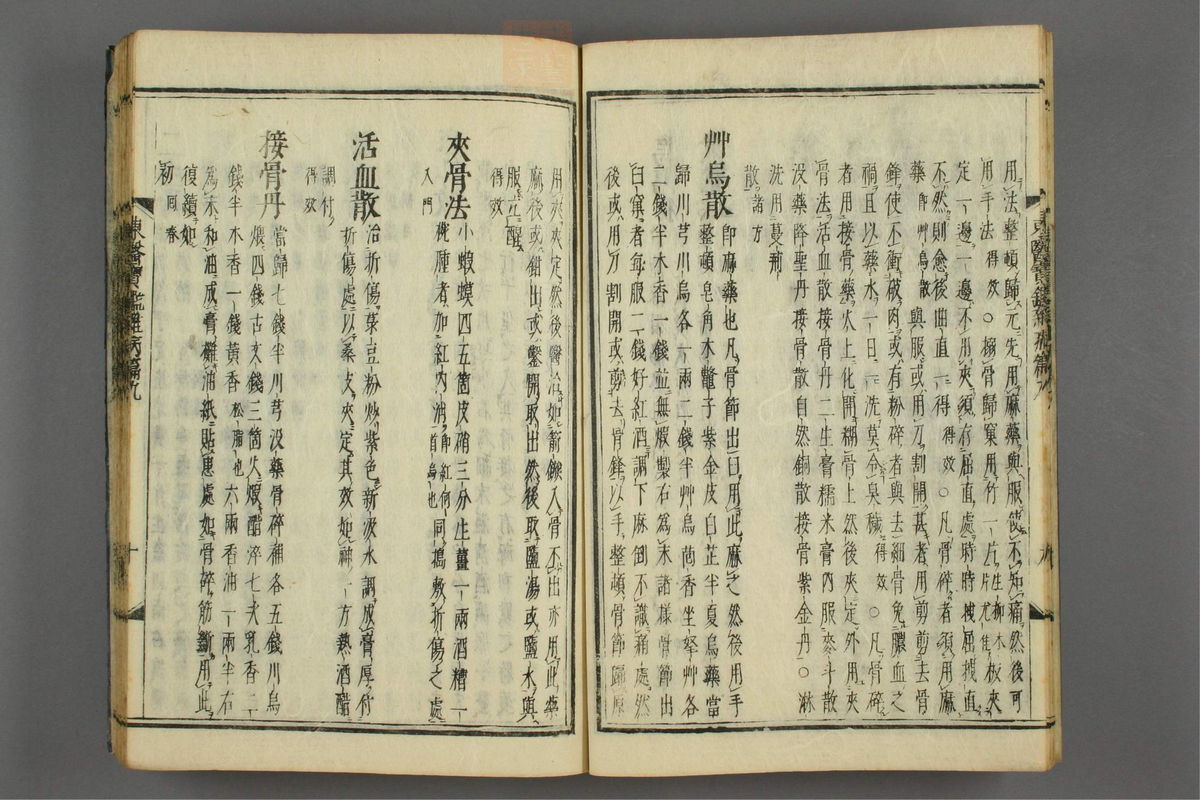 用法整頓歸元先用麻藥與服使不知痛然後可
用手法得效○搦骨歸窠用竹一片生柳木板夾
定一邊一邊不用夾須存屈直處時時拽屈拽直
不然則愈後曲直不得得效○凡骨碎者須用麻
藥卽艸烏散與服或用刀割開甚者用剪剪去骨
鋒使不衝破肉或有粉碎者與去細骨免膿血之
禍且以藥水一日一洗莫令臭穢得效○凡骨碎
者用接骨藥火上化開糊骨上然後夾定外用夾
骨法活血散接骨丹二生膏糯米膏內服麥斗散
沒藥降聖丹接骨散自然銅散接骨紫金丹○淋
洗用蔓荊
散諸方
艸烏散卽麻藥也凡骨節出臼用此麻之然後用手
整頓皂角木鼈子紫金皮白芷半夏烏藥當
歸川芎川烏各一兩二錢半艸烏茴香坐拏艸各
二錢半木香一錢並無煅製右爲末諸樣骨節出
臼窠者每服二錢好紅酒調下麻倒不識痛處然
後或用刀割開或剪去骨鋒以手整頓骨節歸原
用夾夾定然後醫治如箭鏃入骨不出亦用此藥
麻後或鉗出或鑿開取出然後取鹽湯或鹽水與
服立醒
得效
夾骨法小蝦蟆四五箇皮硝三分生薑一兩酒糟一
椀腫者加紅內消卽紅何首烏也同搗敷折傷之處
入門
活血散治折傷菉豆粉炒紫色新汲水調成膏厚付
折傷處以桑皮夾定其效如神一方熱酒醋
調付
得效
接骨丹當歸七錢半川芎沒藥骨碎補各五錢川烏
煨四錢古文錢三箇火煅醋淬七次乳香二
錢半木香一錢黃香松脂也六兩香油一兩半右
爲末和油成膏攤油紙貼患處如骨碎筋斷用此
復續如
初回春
東醫寶鑑雜病篇九